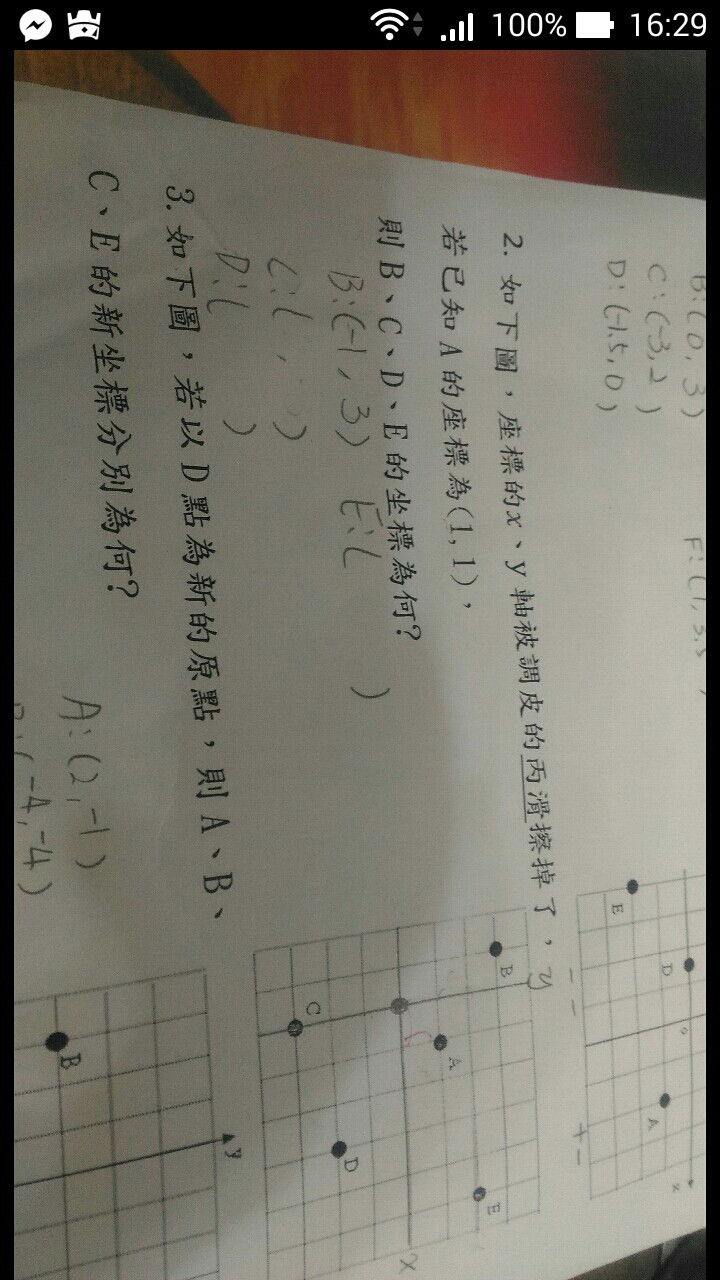 100% 16:29
B:(0,3)
C:(-3,2)
D:(-1.5,0)
F:(1,3.5)
E
D
0
A
x
2. 如下圖，座標的x、y軸被調皮的丙滑擦掉了，
若已知A的座標為(1,1)，
則B、C、D、E的坐標為何？
B:(-1,3) E:( )
C:( , )
D:( )
y
B
A
C
D
E
X
3. 如下圖，若以D點為新的原點，則A、B、
C、E的新坐標分別為何？
A:(2,-1)
(-4,-4)
y
B